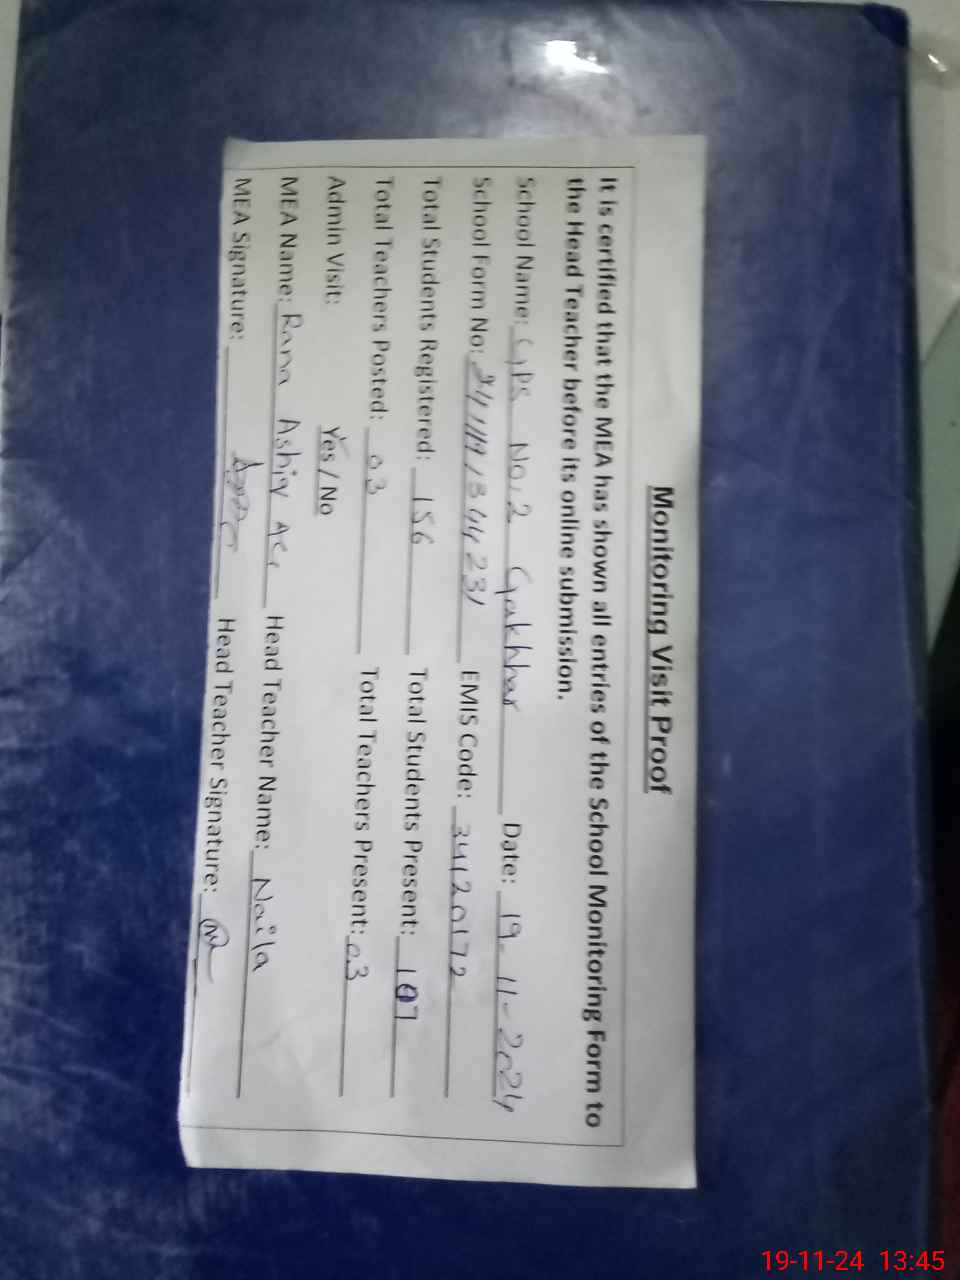 Monitoring Visit Proof
It is certified that the MEA has shown all entries of the School Monitoring Form to
the Head Teacher before its online submission.
School Name: GPS No.2 Gakhhar Date: 19-11-2024
School Form No: EMIS Code: 34120172
Total Students Registered: 156 Total Students Present: 107
Total Teachers Posted: 03 Total Teachers Present: 03
Admin Visit: Yes / No
MEA Name: Rana Ashiq Head Teacher Name: Naila
MEA Signature: Head Teacher Signature:
19-11-24 13:45